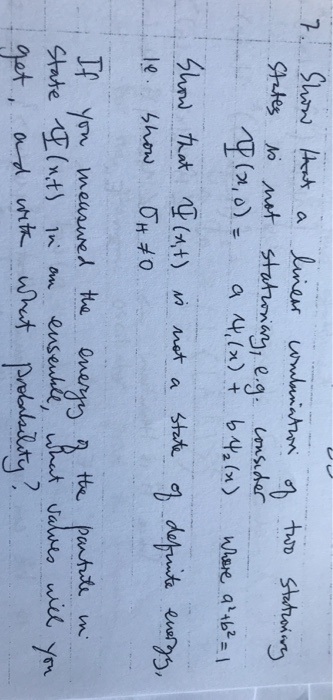 7. Show that a linear combination of two stationary
states is not stationary, e.g. consider
Ψ(x,0) = a ψ₁(x) + b ψ₂(x) where a²+b² = 1
Show that Ψ(x,t) is not a state of definite energy,
ie show σH ≠ 0
If you measured the energy of the particle in
state Ψ(x,t) in an ensemble, what values will you
get, and with what probability?